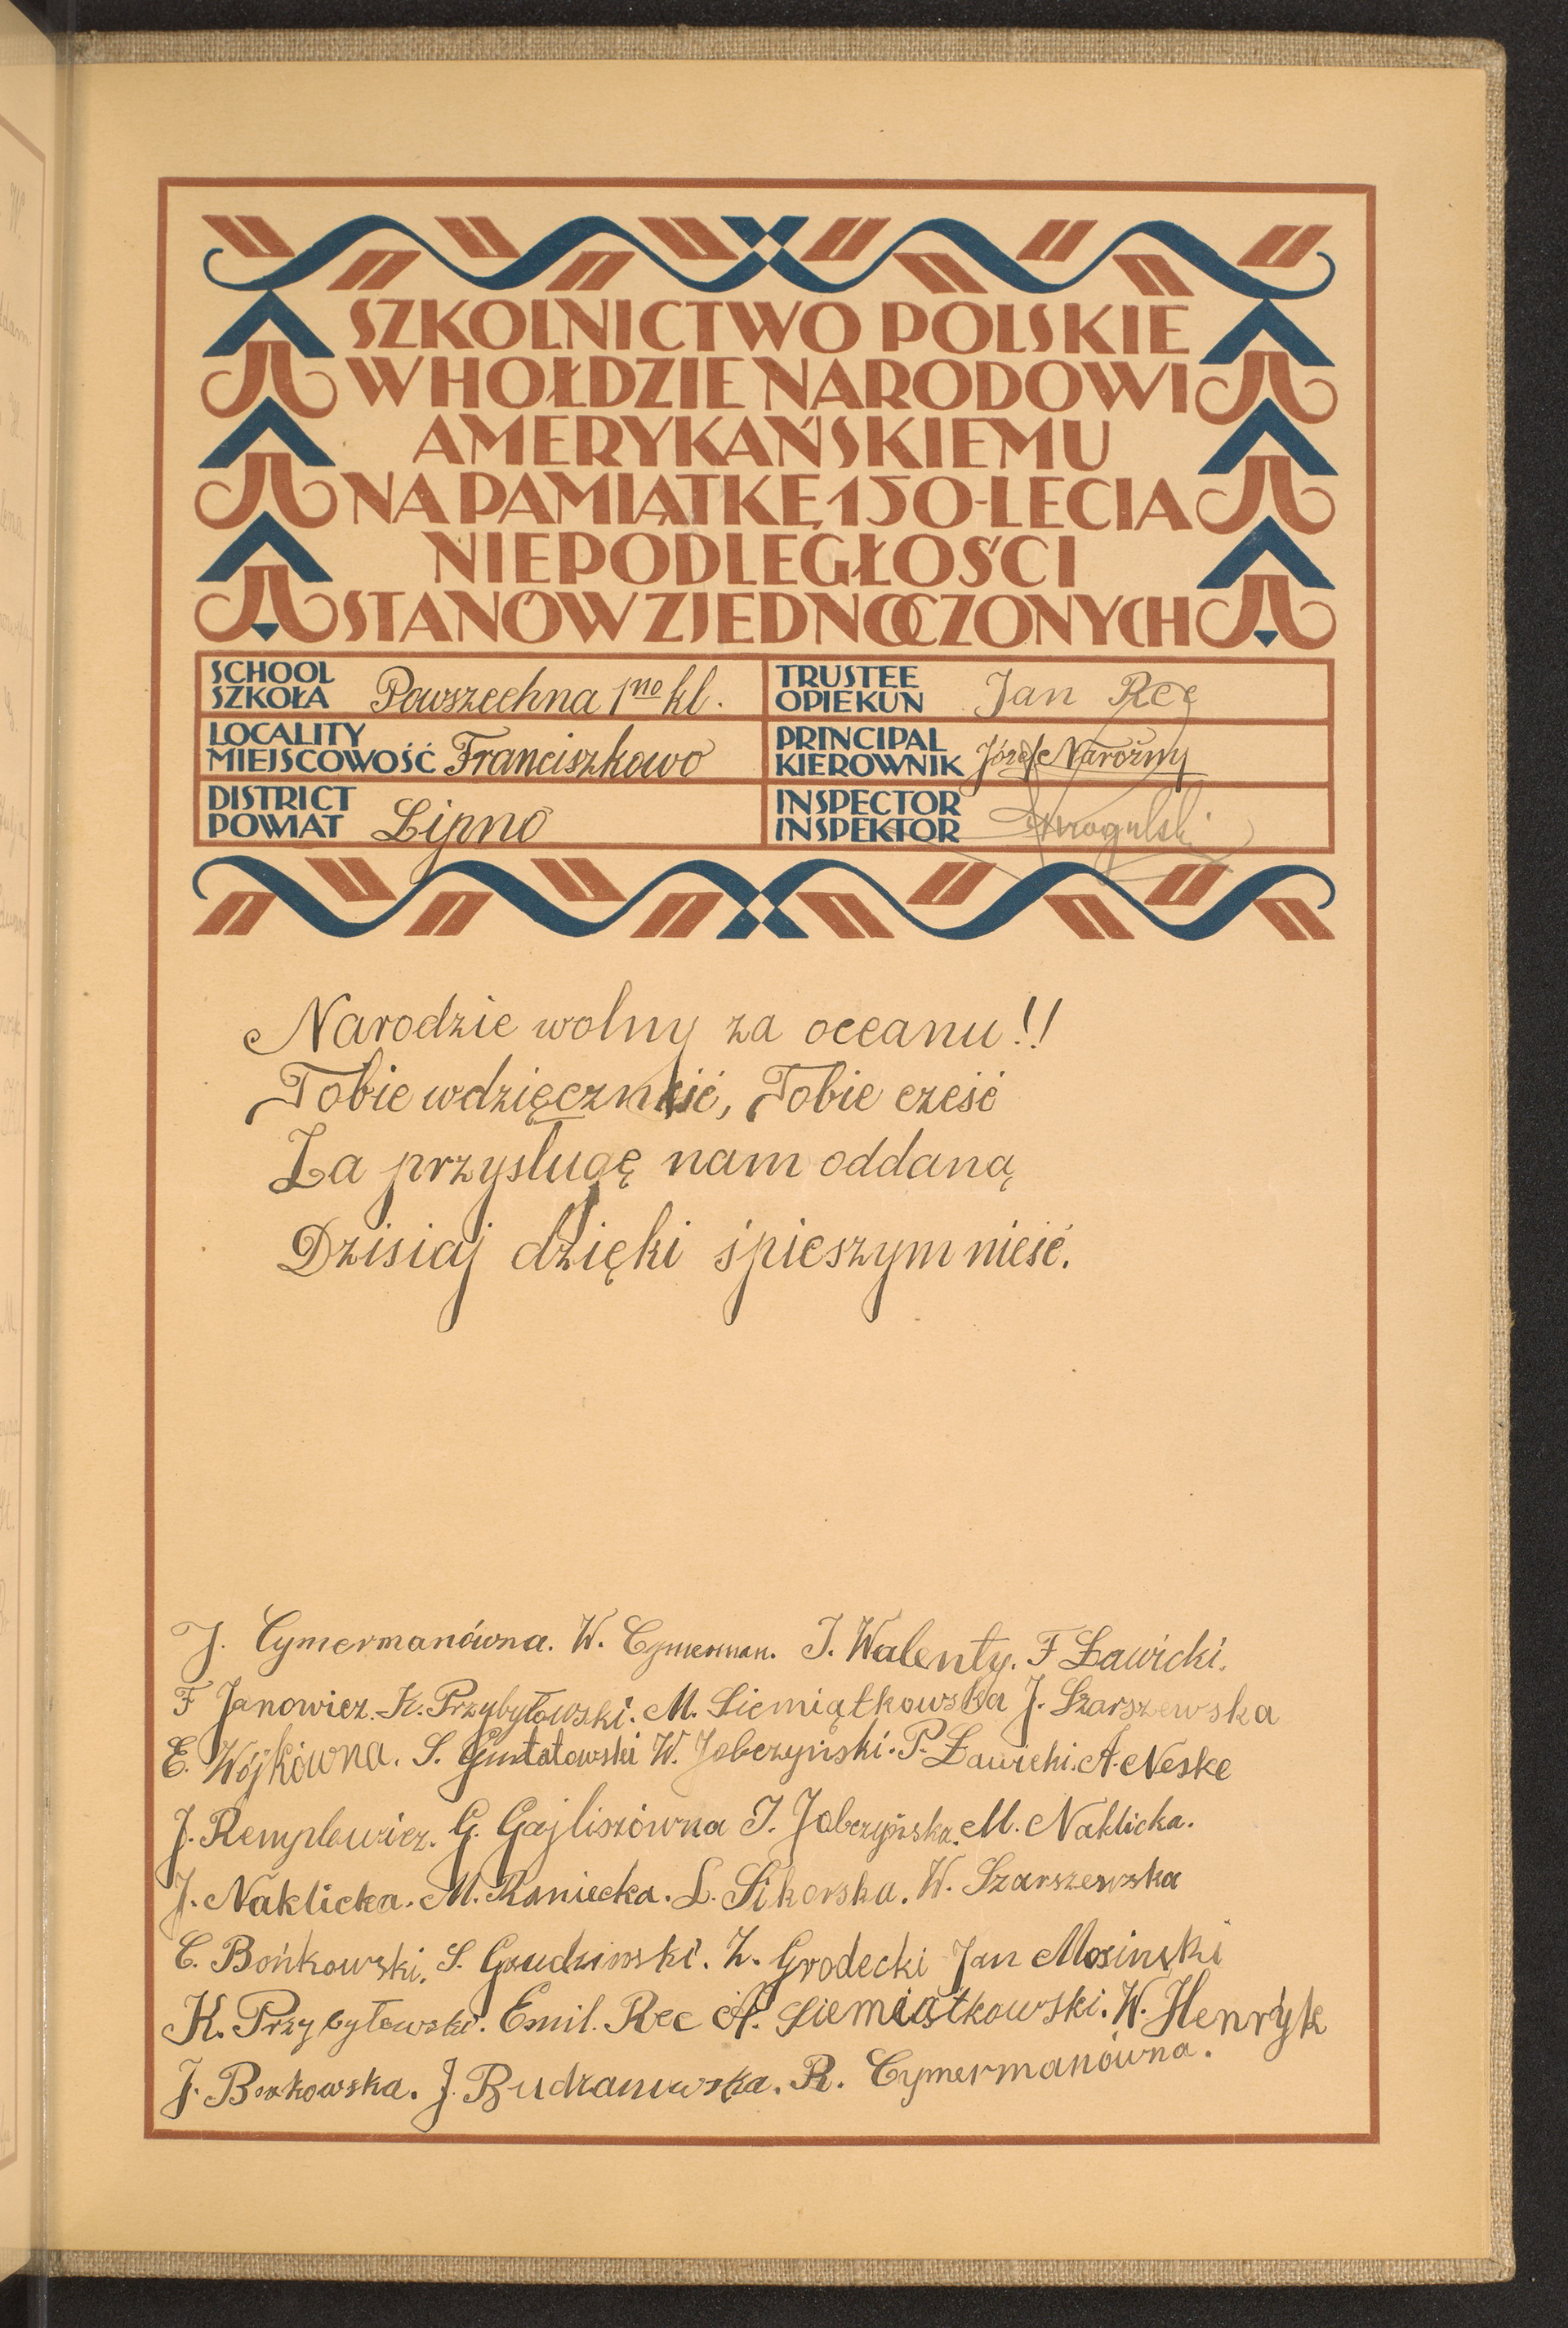 SZKOLNICTWO POLSKIE
W HOŁDZIE NARODOWI
AMERYKAŃSKIEMU
NA PAMIĄTKĘ 150-LECIA
NIEPODLEGŁOŚCI
STANÓW ZJEDNOCZONYCH
SCHOOL
SZKOŁA Powszechna 1no kl.
TRUSTEE
OPIEKUN Jan Rec
LOCALITY
MIEJSCOWOŚĆ Franciszkowo
PRINCIPAL
KIEROWNIK Józef Narożny
DISTRICT
POWIAT Lipno
INSPECTOR
INSPEKTOR
Narodzie wolny za oceanu!!
Tobie wdzięczność, Tobie cześć
Za przysługę nam oddaną
Dzisiaj dzięki śpieszym nieść.
J. Cymermanówna. W. Cymerman. J. Walenty. F Ławicki.
F Janowicz. K. Przybyłowski. M. Siemiątkowska J. Szarszewska
E. Wójkówna. S. W. Jobczyński. P. Ławicki. A. Neske
J. Remplewicz. G. Gajliszówna J. Jobczyńska. M. Naklicka.
J. Naklicka. M. Raniecka. L. Sikorska. W. Szarszewska
C. Bońkowski. S. Z. Grodecki Jan Mosinski
K. Przybyłowski. Emil. Rec A. Siemiątkowski. W. Henryk
J. Bonkowska. J. R. Cymermanówna.